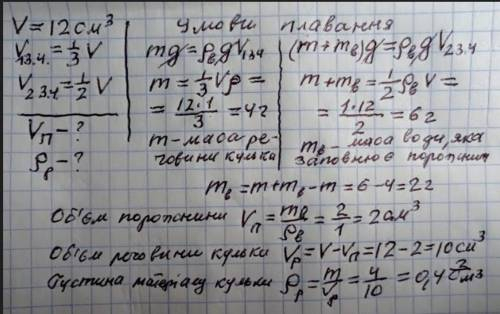 V = 12 см³
V₁з.ч. = 1/3 V
V₂з.ч = 1/2 V
Vп - ?
ρр - ?
Умови плавання
mg = ρвgV₁зч
m = 1/3 Vρ =
= 12·1/3 = 4г
m - маса ре-
човини кульки
(m + mв)g = ρвgV₂з.ч
m + mв = 1/2 ρвV =
= 1·12/2 = 6г
mв - маса води, яка
заповнює порожнин
mв = m + mв - m = 6 - 4 = 2г
Об'єм порожнини Vп = mв/ρв = 2/1 = 2см³
Об'єм речовини кульки Vр = V - Vп = 12 - 2 = 10см³
Густина матеріалу кульки ρр = m/Vр = 4/10 = 0,4 г/см³